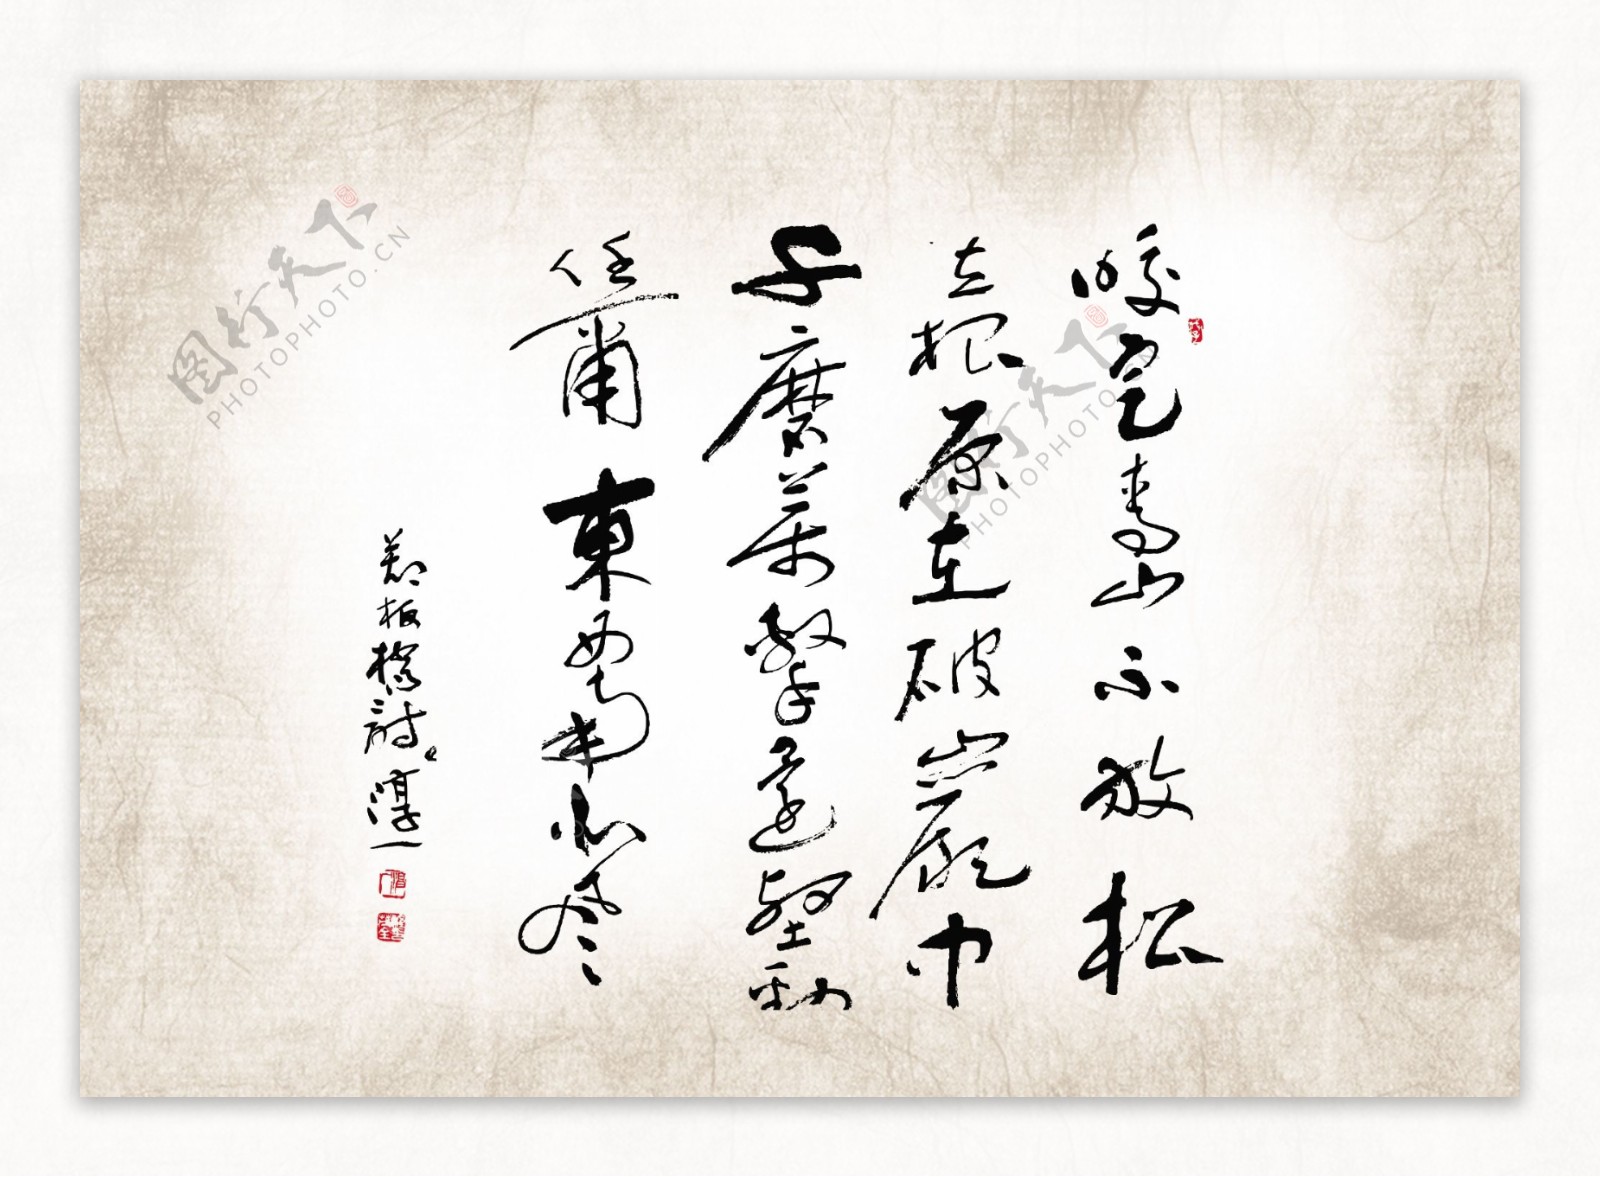 咬定青山不放松
立根原在破巖中
千磨萬擊還堅勁
任爾東西南北風
鄭板橋詩 淳一
图行天下
PHOTOPHOTO.CN
图行天下
PHOTOPHOTO.CN